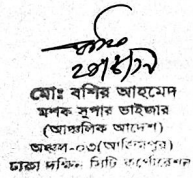 মোঃ বশির আহমেদ
মশক সুপার ভাইজার
(আঞ্চলিক আদেশ)
অঞ্চল-০৩(আজিমপুর)
ঢাকা দক্ষিন সিটি কর্পোরেশন